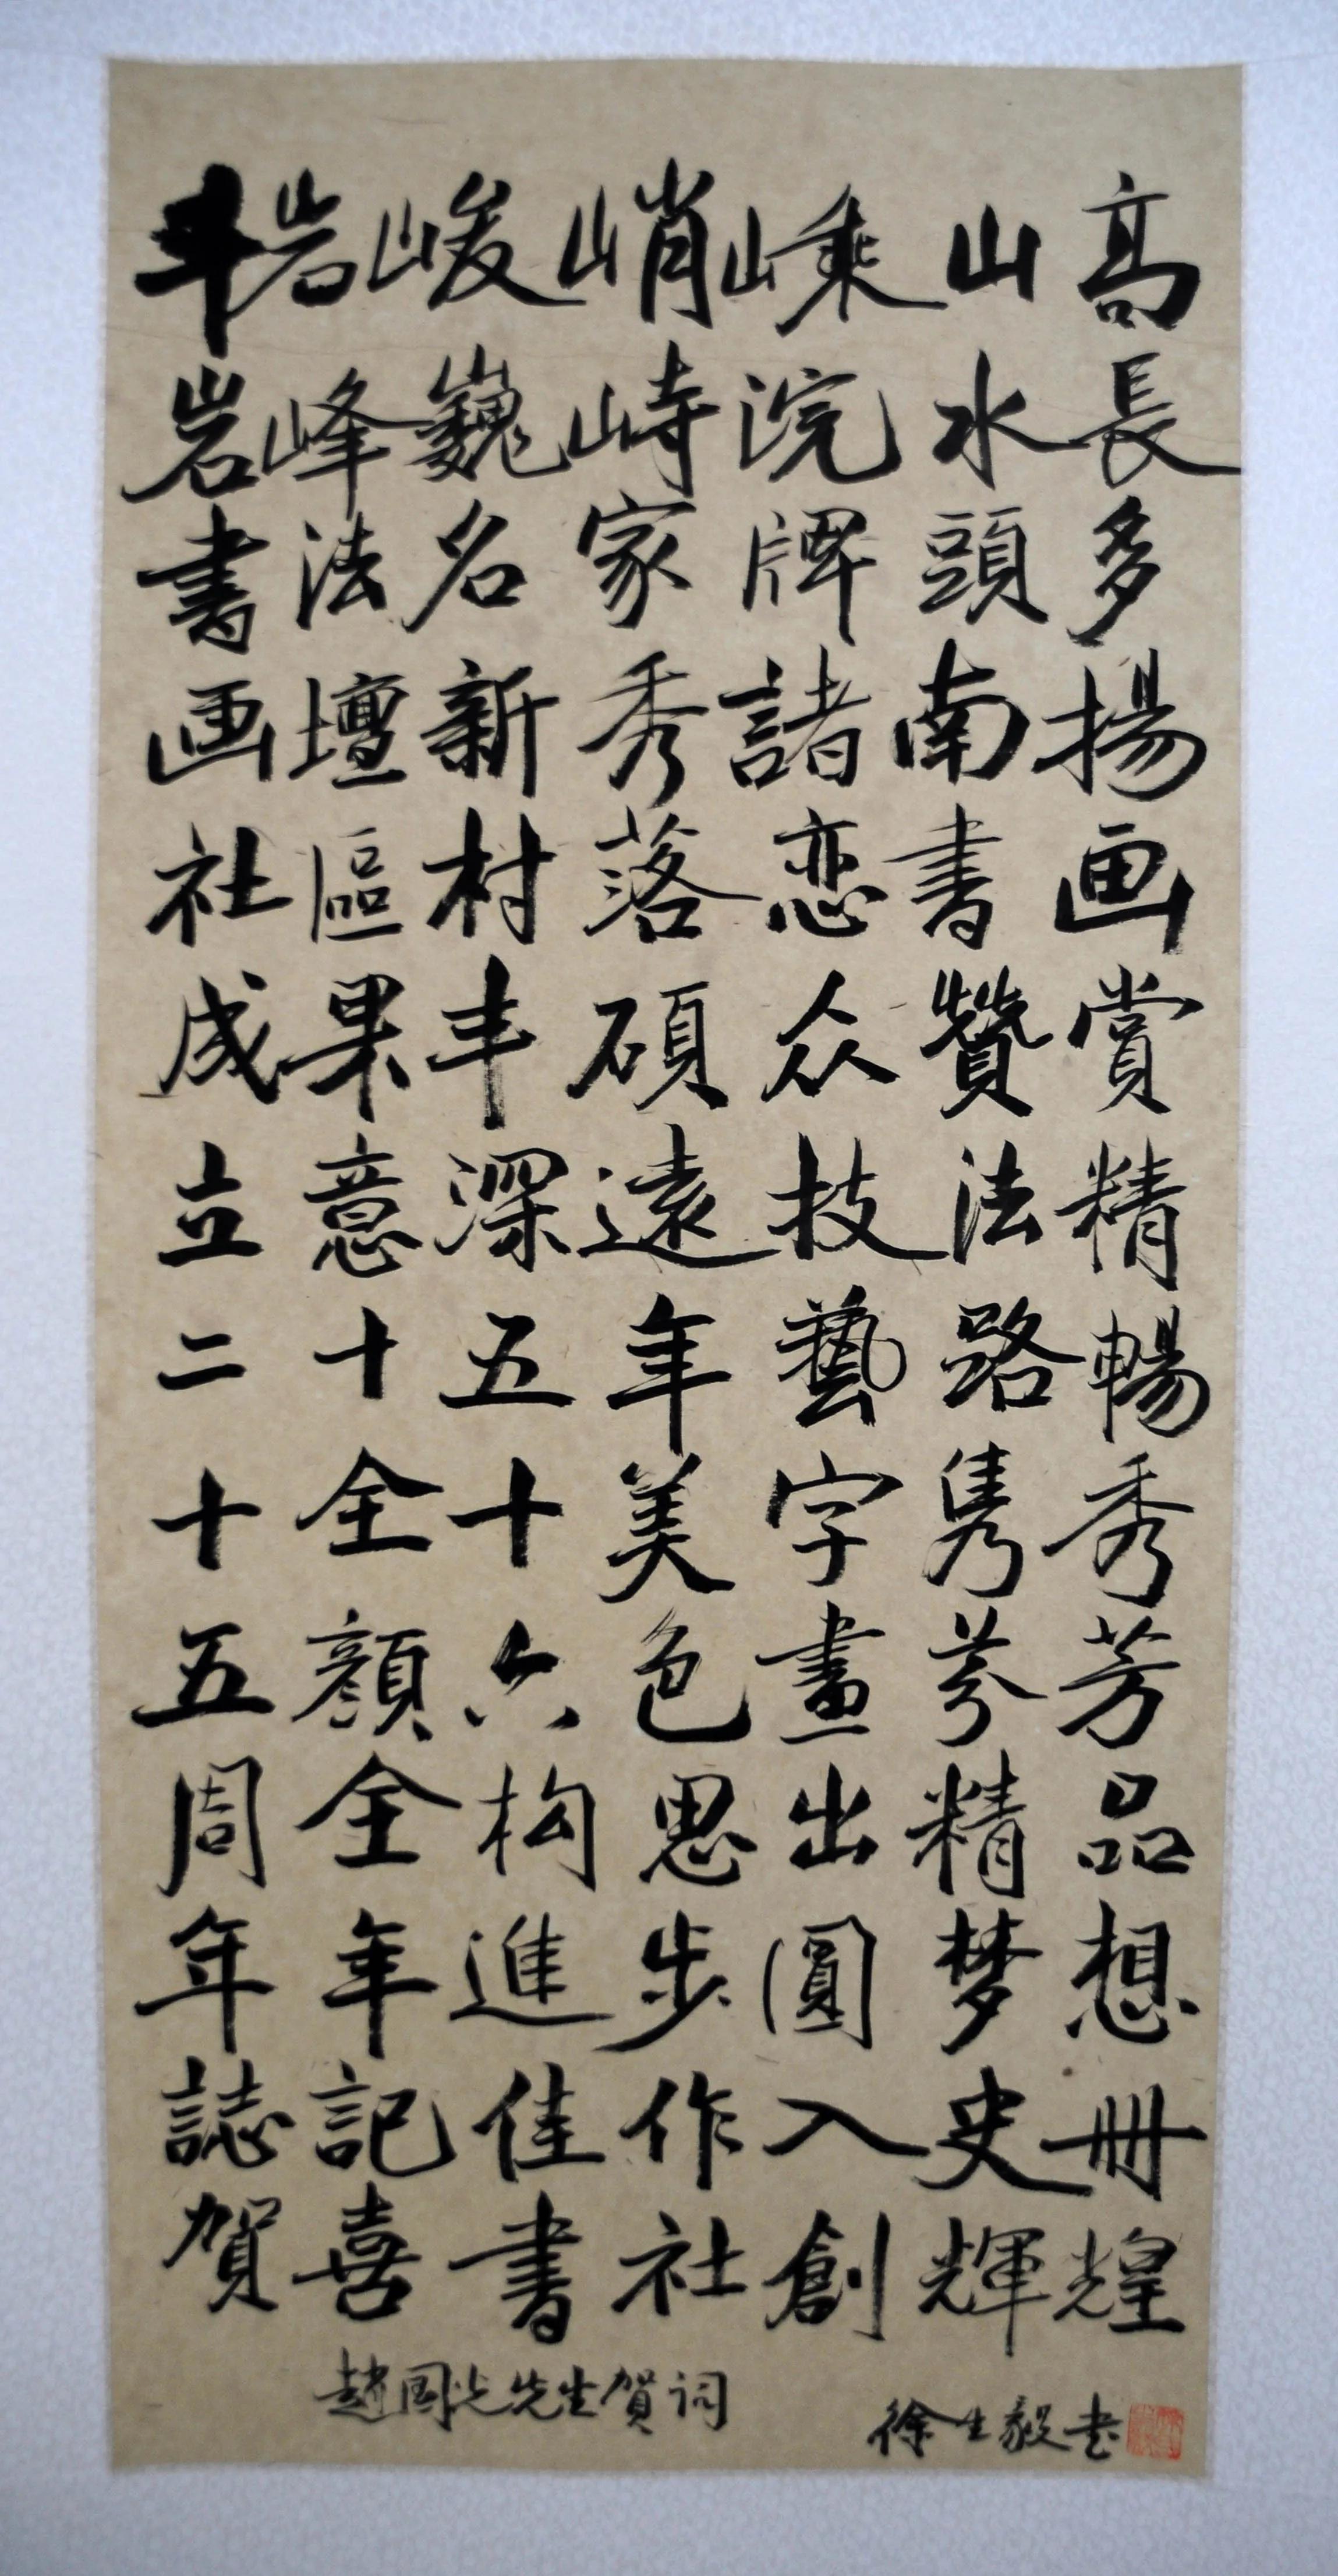 斗岩峻峭嵊山高
岩峰巍峙浣水長
書法名家牌頭多
画壇新秀諸南揚
社區村落恋書画
成果丰碩众贊賞
立意深遠技法精
二十五年藝路暢
十全十美字雋秀
五顔六色畫芬芳
周全构思出精品
年年進步圓梦想
誌記佳作入史冊
賀喜書社創輝煌
趙國光先生賀詞
徐生毅书